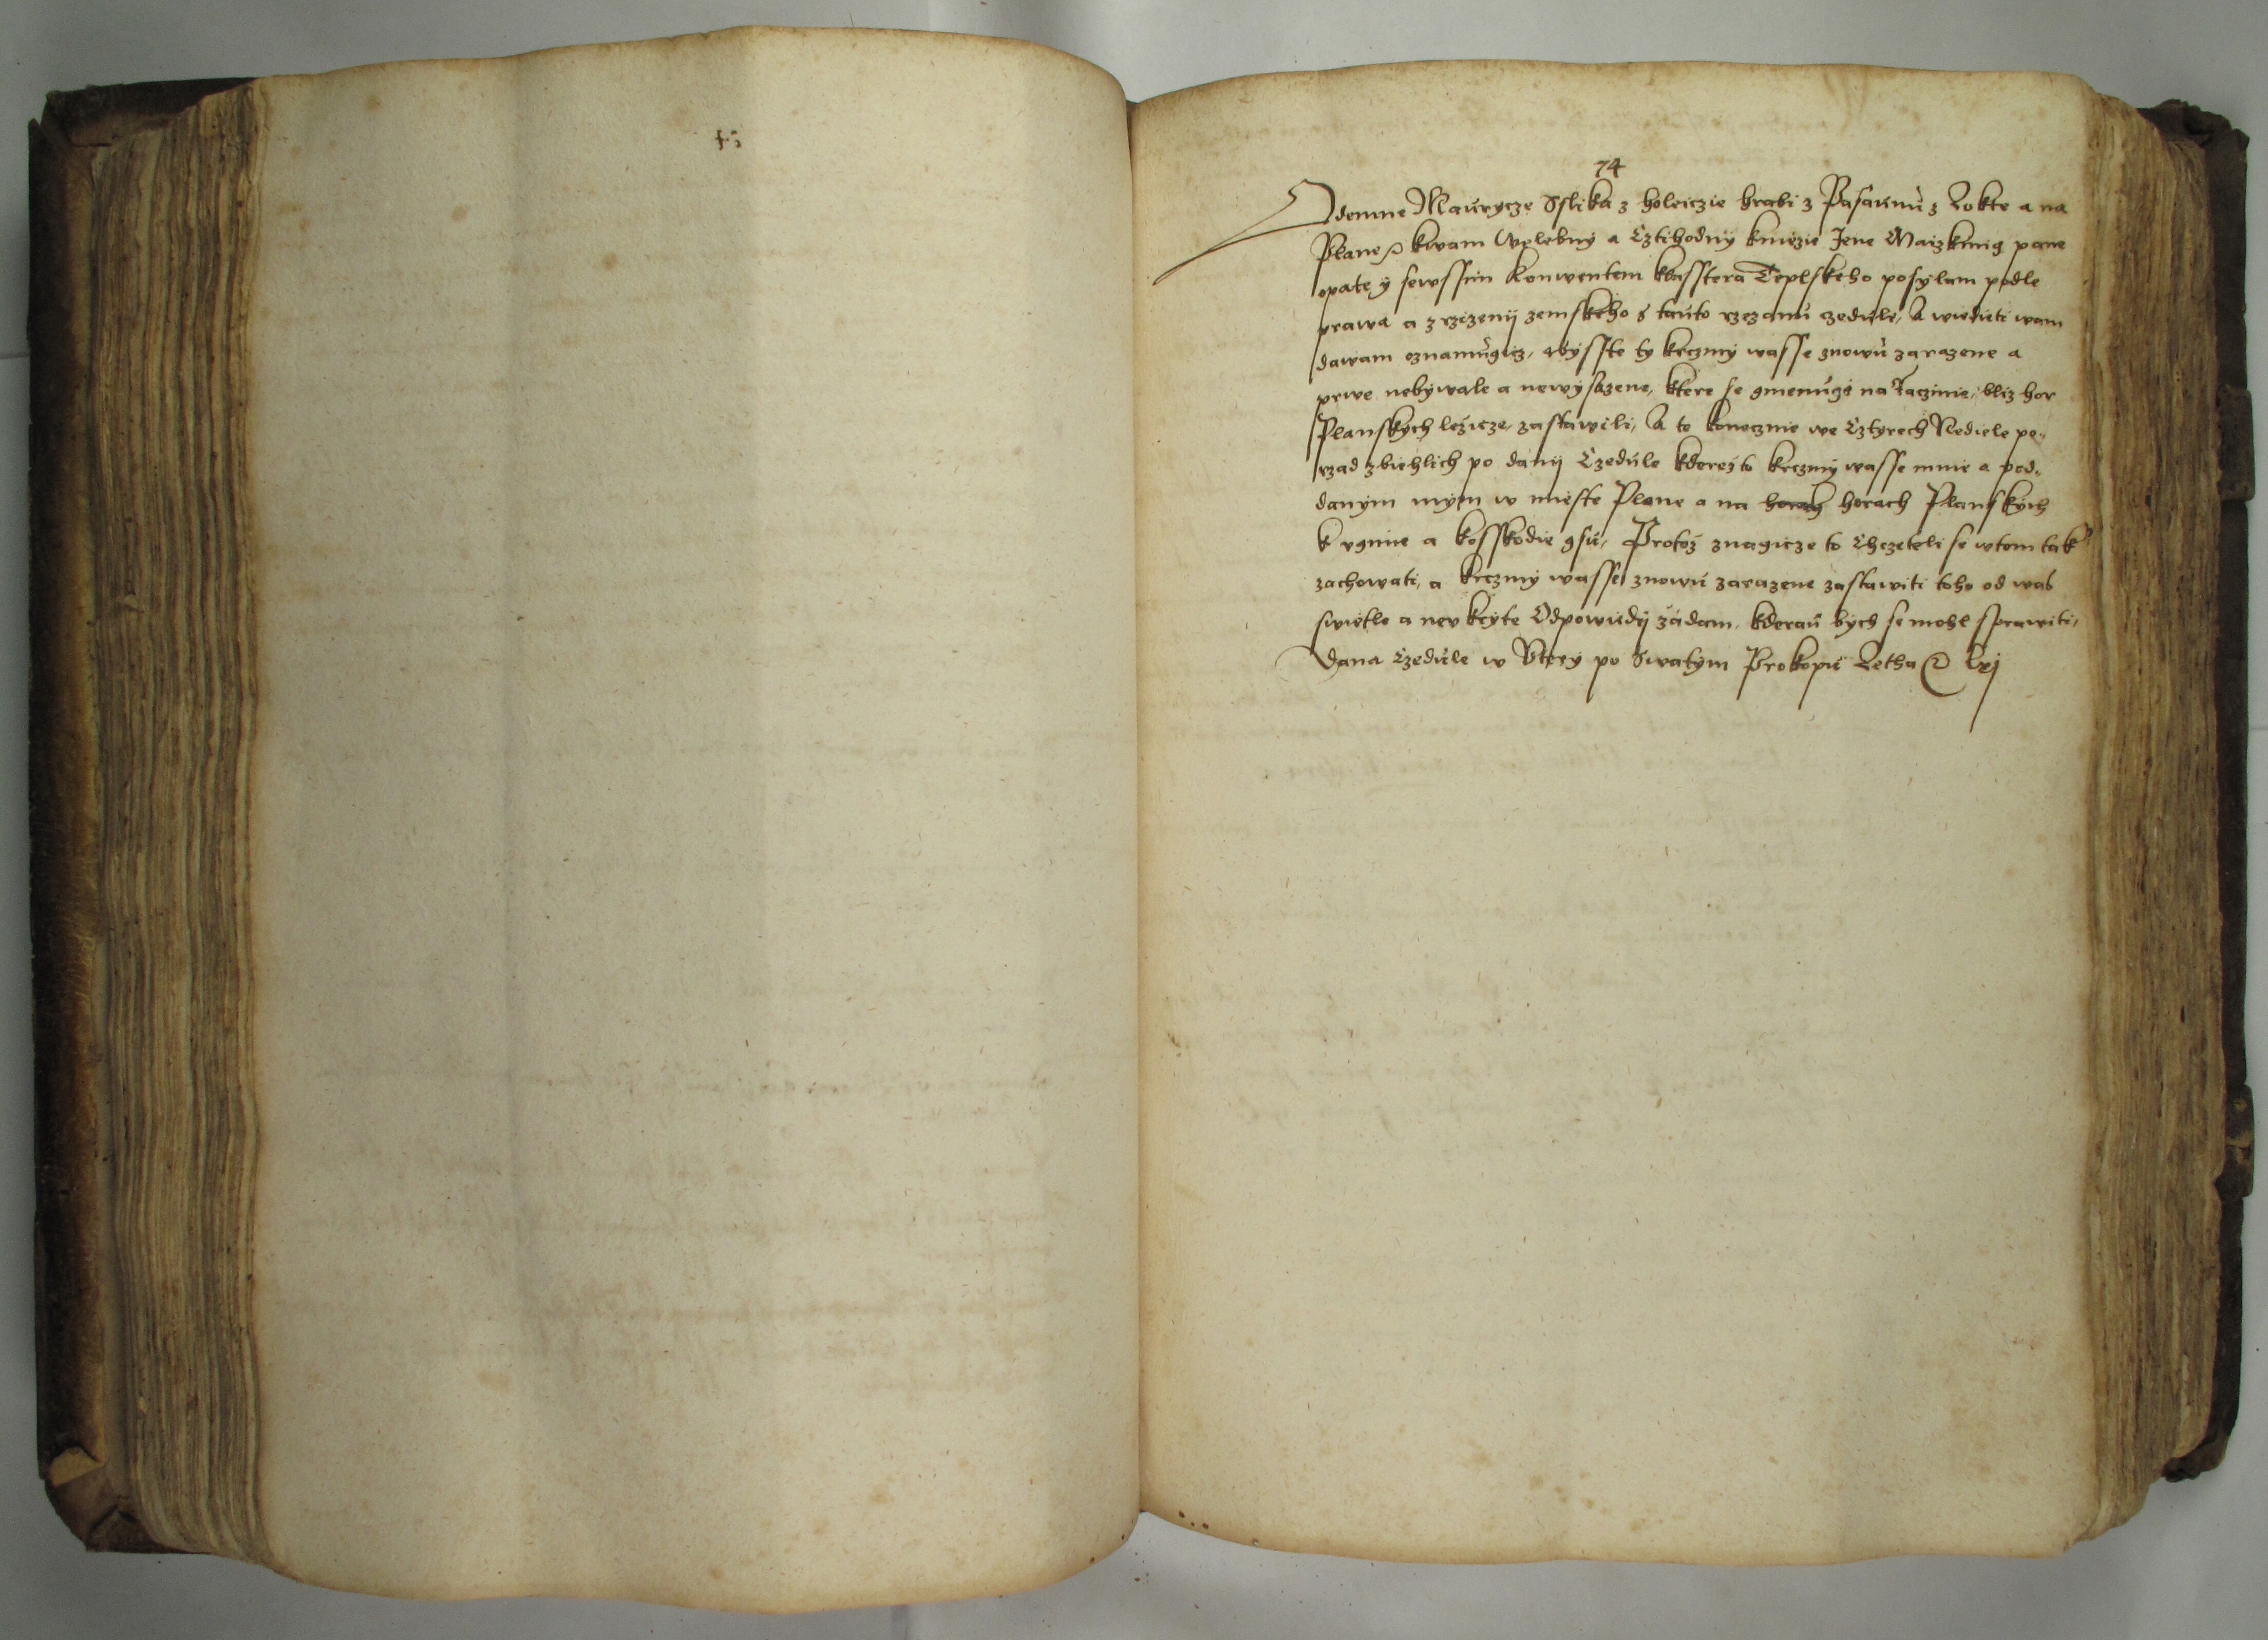 74
Odemne Maurycze Sslika z holeiczie hrabi z Pasaunu z Lokte a na
Plane kwam Welebny a Cztihodny knieze Jene Maizknig pane
opate y sewssim Konwentem klasstera Teplskeho posylam podle
prawa a zrzizenij zemskeho s tauto rzezanu czedule, A wiedieti wam
dawam oznamugicz, abysste ty krczmy wasse znowu zarazene a
prwe nebywale a newysazene, ktere se gmenugi na bliz hor
Planskych ležicze, zastawili, A to konecznie we Cztyrech Nediele po„
rzad zbiehlich po danij Czedule kderežto krczmy wasse mnie a pod„
danym mym w mieste Plane a na horach horach Planskych
k vgmie a kosskodie gsu, Protož znagicze to Chczeteli se wtom tak
zachowati, a krczmy wasse znowu zarazene zastawiti toho od was
swietle a nevkryte Odpowiedij žádam, kderau bych se mohl sprawiti,
Dana Czedule w Vtery po Swatym Prokopu Letha lxj